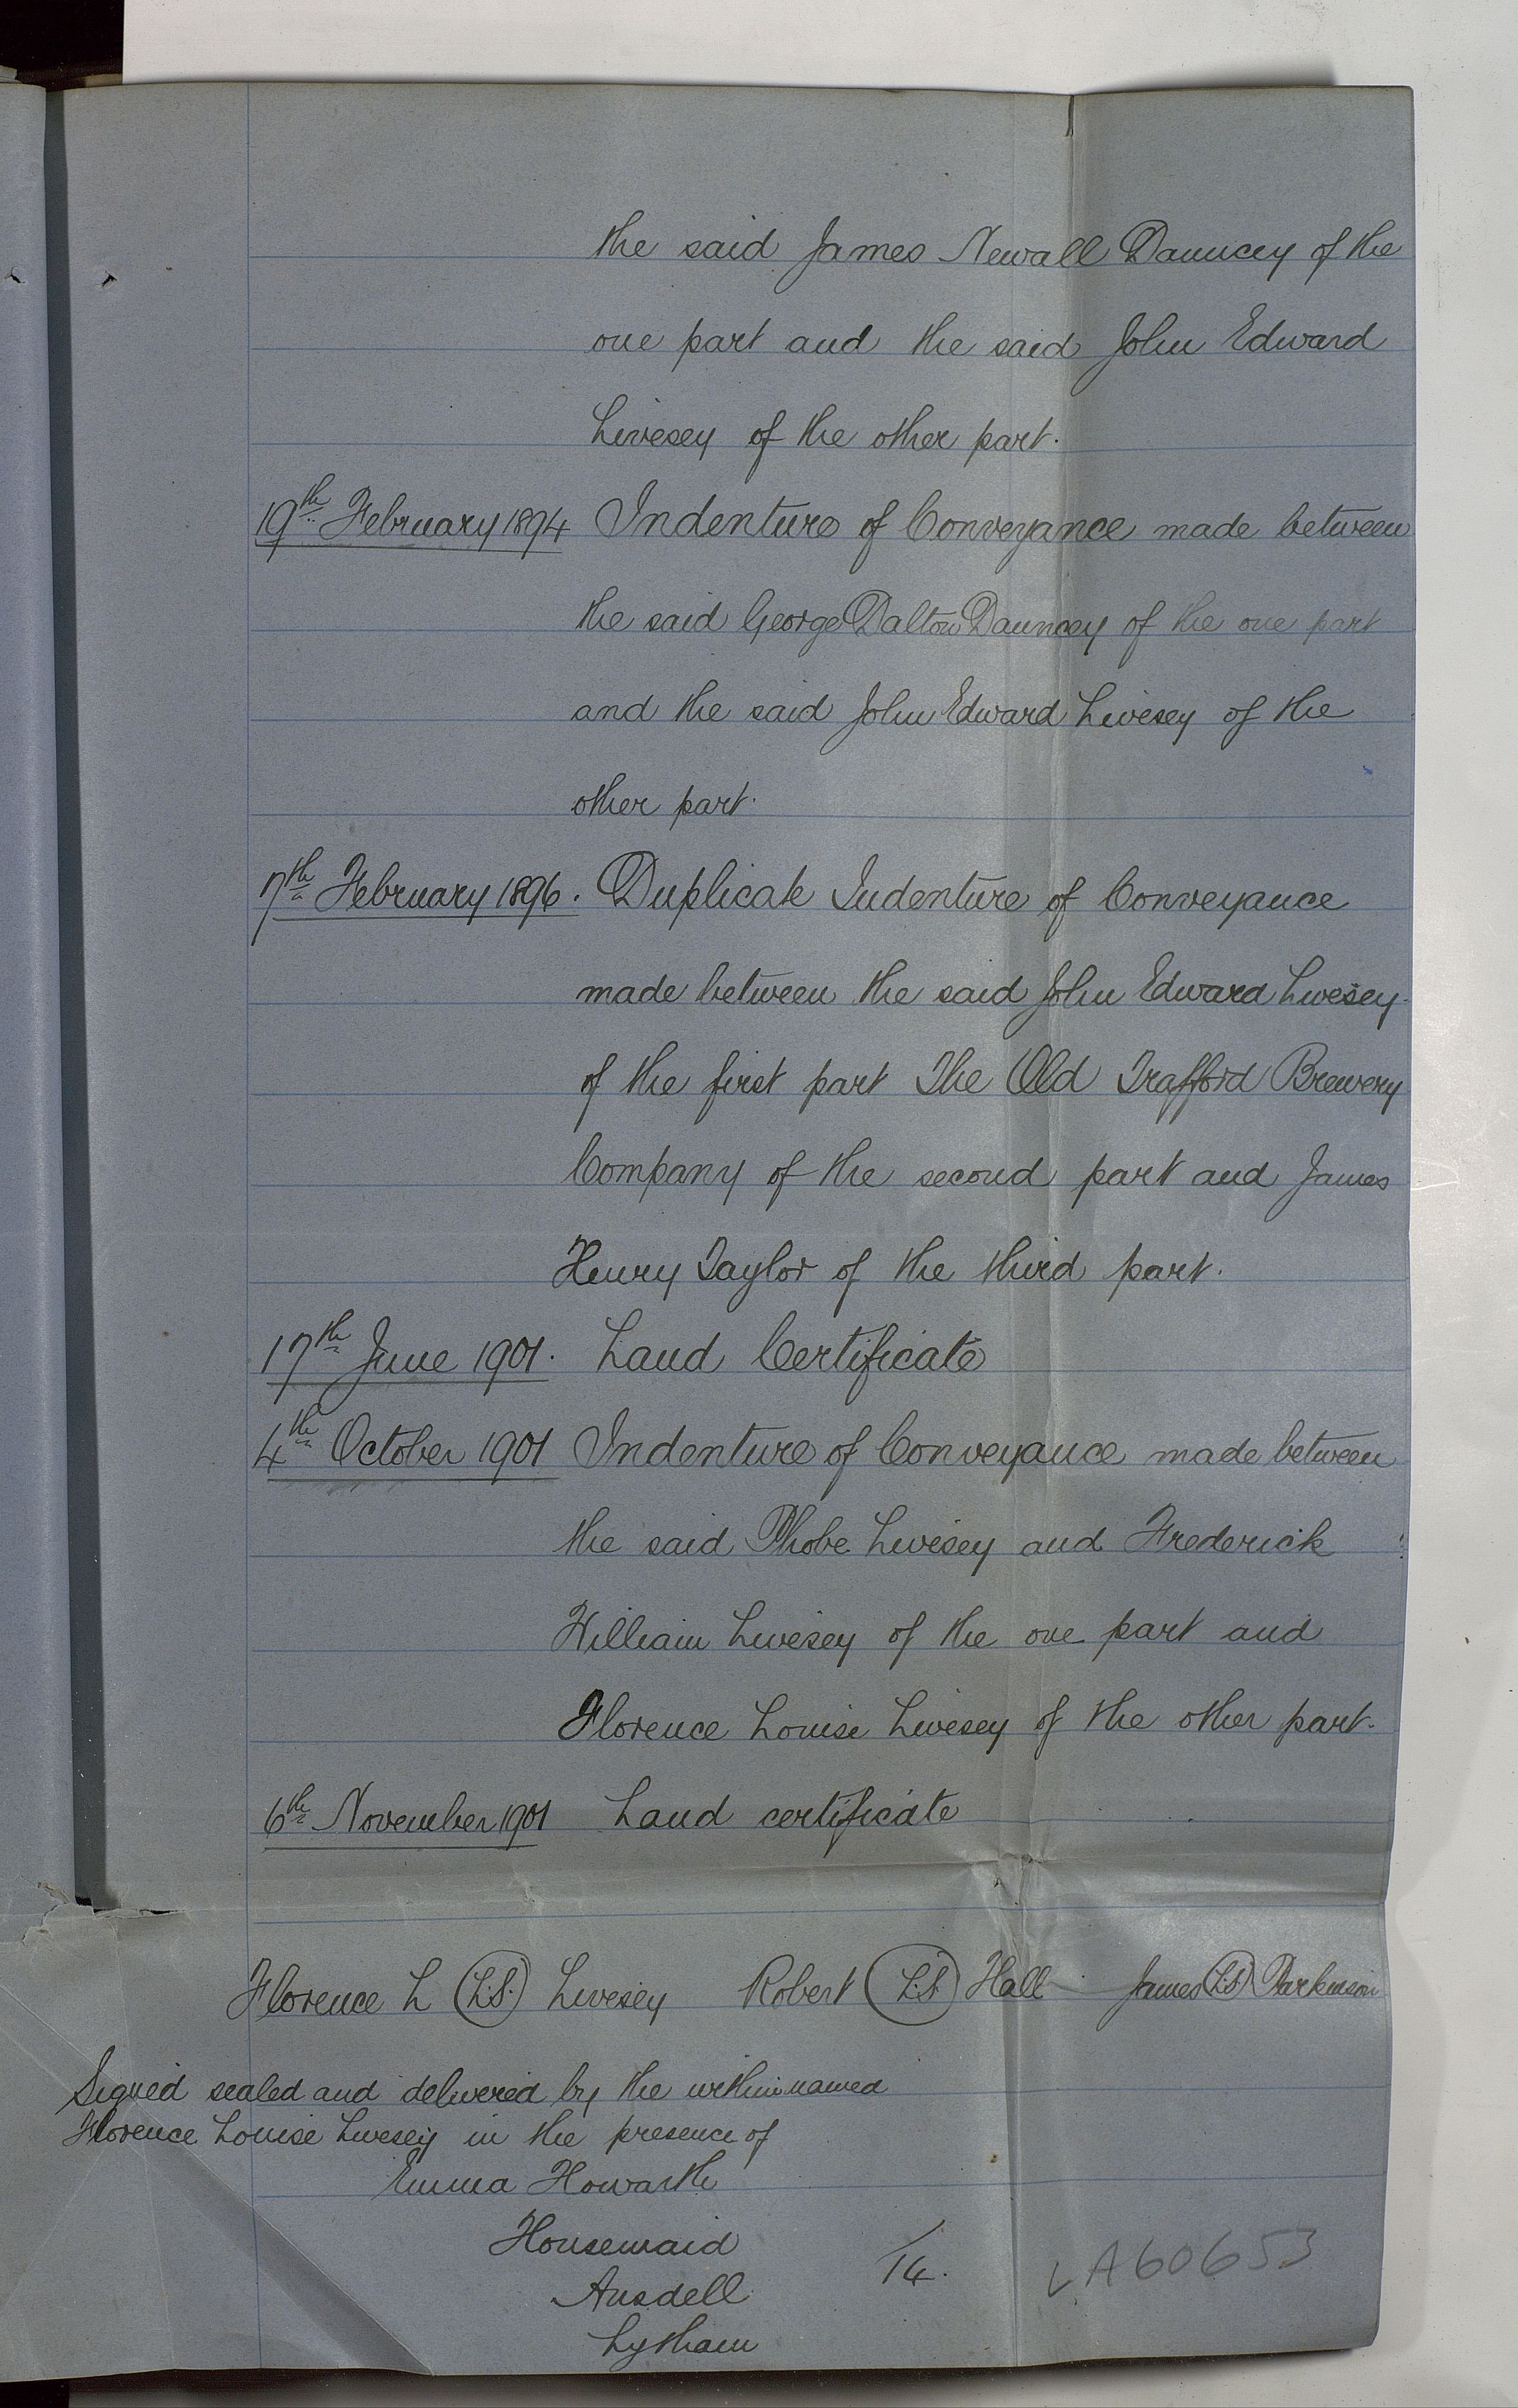 the said James Newall Dauncey of the
one part and the said John Edward
Livesey of the other part.
19th February 1894 Indenture of Conveyance made between
the said George Dalton Dauncey of the one part
and the said John Edward Livesey of the
other part.
7th February 1896. Duplicate Indenture of Conveyance
made between the said John Edward Livesey
of the first part The Old Trafford Brewery
Company of the second part and James
Henry Taylor of the third part.
17th June 1901. Land Certificate
4th October 1901 Indenture of Conveyance made between
the said Phobe Livesey and Frederick
William Livesey of the one part and
Florence Louise Livesey of the other part.
6th November 1901 Land certificate
Florence L (L.S.) Livesey Robert (L.S.) Hall James (L.S.) Parkinson
Signed sealed and delivered by the within named
Florence Louise Livesey in the presence of
Emma Howarth
Housemaid
Ansdell
Lytham
14.
LA60653